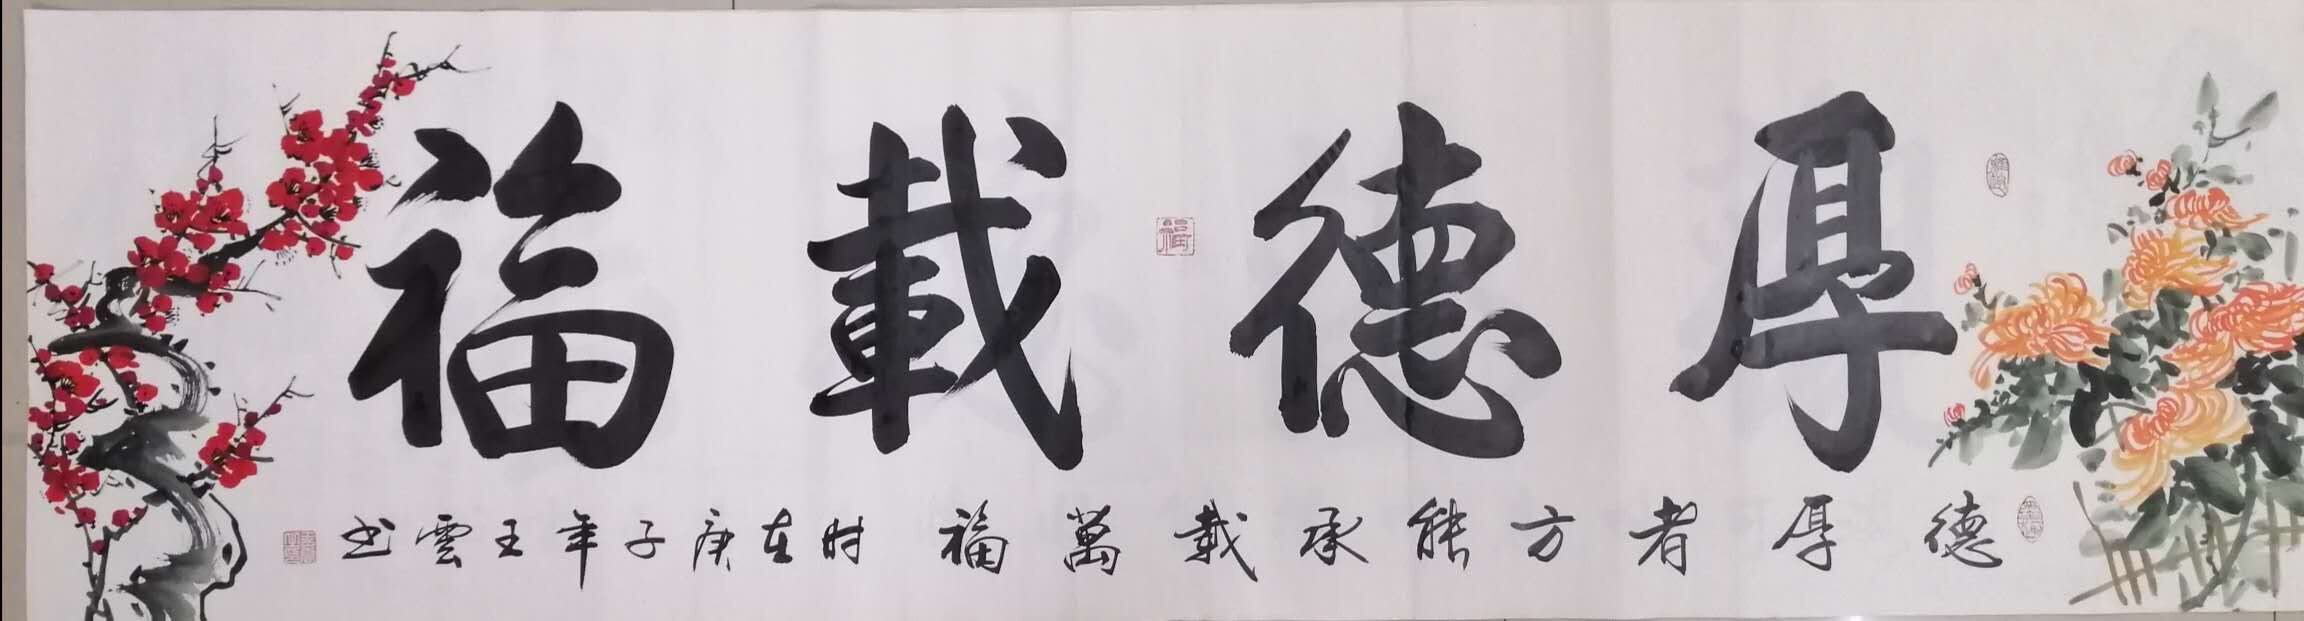 厚德載福
德厚者方能承載萬福时在庚子年王雲书
福